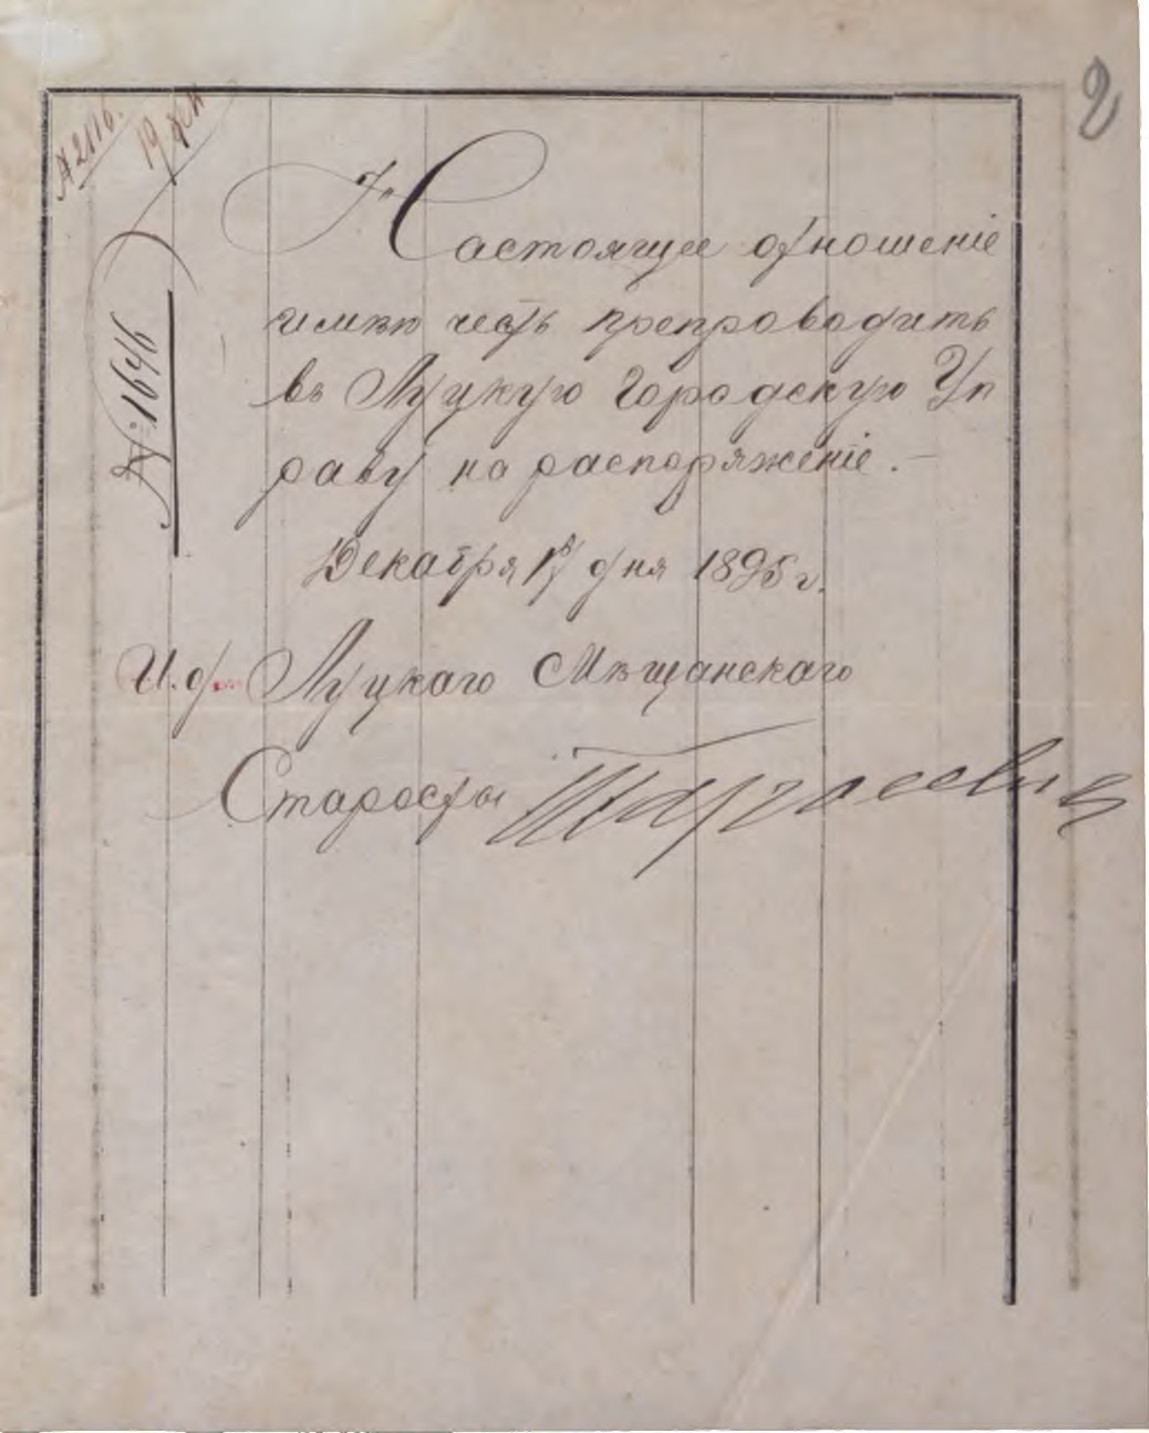 2
№ 2116.
19 дек
№ 1646
Настоящее отношеніе
имѣю честь препроводить
въ Луцкую Городскую Уп
раву на распоряженіе. —
Декабря дня 1895 г.
И. д. Луцкаго Мѣщанскаго
Старосты